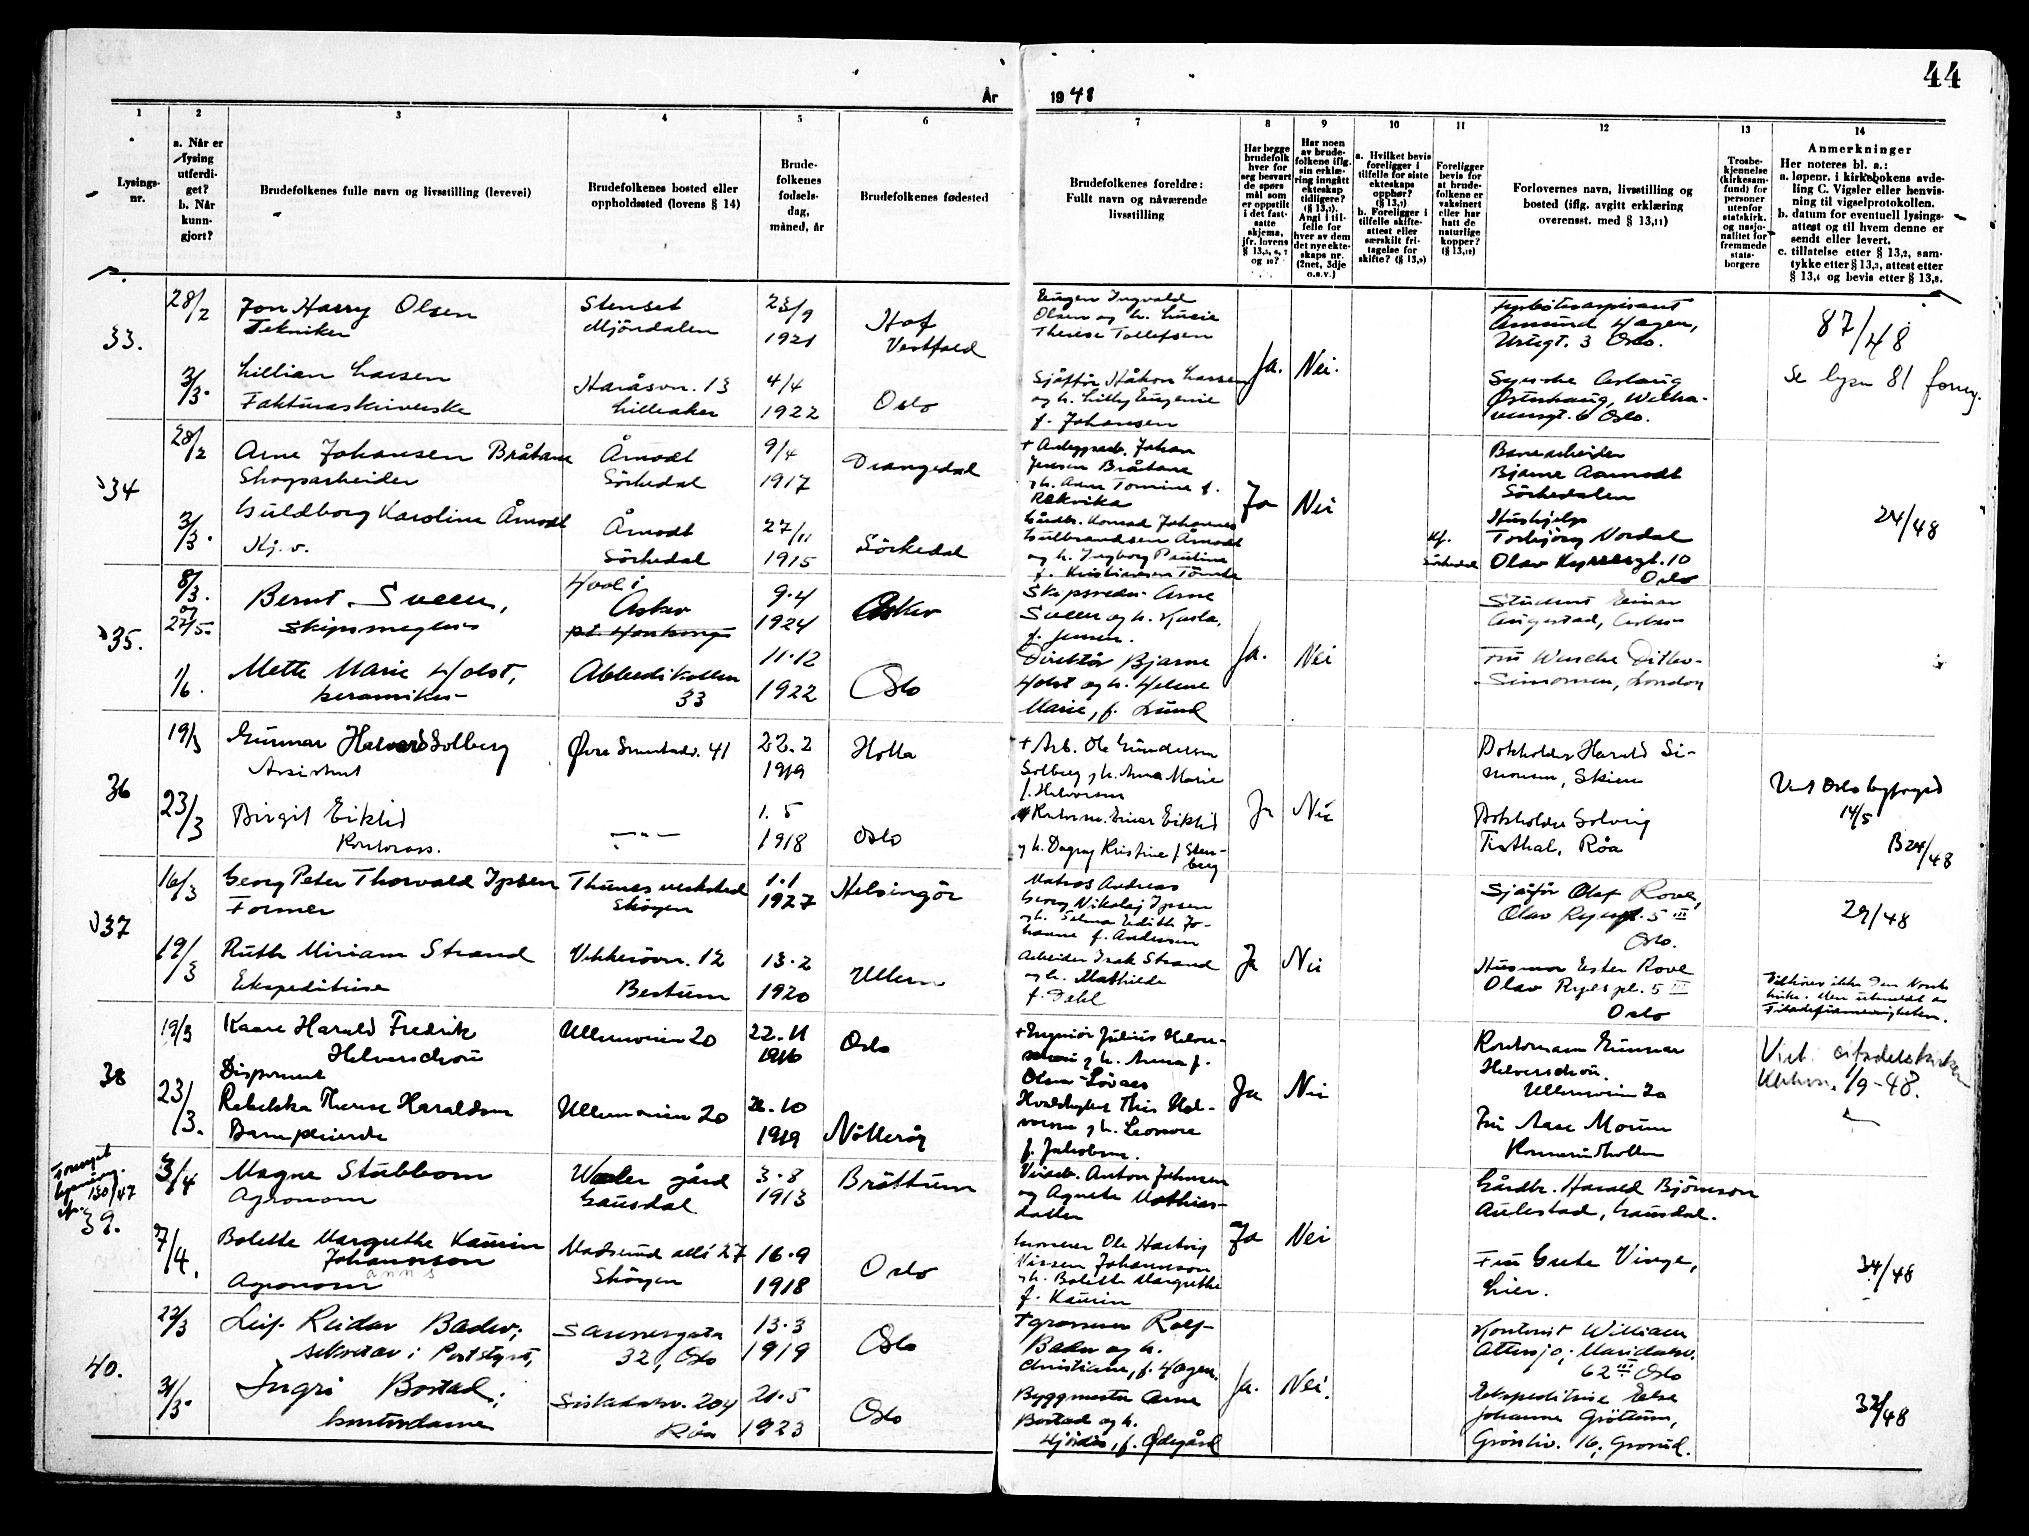 44
År 1948
1
Lysings-
nr.
2
a. Når er
lysing
utferdi-
get?
b. Når
kunn-
gjort?
3
Brudefolkenes fulle navn og livsstilling (levevei)
4
Brudefolkenes bosted eller
oppholdssted (lovens § 14)
5
Brude-
folkenes
fødsels-
dag,
måned, år
6
Brudefolkenes fødested
7
Brudefolkenes foreldre:
Fullt navn og nåværende
livsstilling
8
Har begge
brudefolk
hver for
seg besvart
de spørs
mål som
er oppstilt
i det fast-
satte
skjema,
jfr. lovens
9
Har noen
av brude-
folkene iflg.
sin erklæ-
ring inngått
ekteskap
tidligere?
(§ 13,7).
Angi i til-
felle for
hver av dem
det nye ekte-
skaps nr.
(2net, 3dje
o.s.v.)
10
a. Hvilket bevis
foreligger i
tilfelle for siste
ekteskaps
opphør?
(§ 13,7)
b. Foreligger i
tilfelle skifte-
attest eller
særskilt fri-
tagelse for
skifte? (§ 13,9)
11
Foreligger
bevis for
at brude-
folkene er
vaksinert
eller har
hatt de
naturlige
kopper?
(§ 13,12)
12
Forlovernes navn, livsstilling og
bosted (iflg. avgitt erklæring
overensst. med § 13,11)
13
Trosbe-
kjennelse
(kirkesam-
fund) for
personer
utenfor
statskirk.
og nasjo-
nalitet for
fremmede
stats-
borgere
14
Anmerkninger
Her noteres bl. a.:
a. løpenr. i kirkebokens avde-
ling C. Vigsler eller henvis-
ning til vigselprotokollen.
b. datum for eventuell lysings-
attest og til hvem denne er
sendt eller levert.
c. tillatelse etter § 13,2, sam-
tykke etter § 13,3, attest etter
§ 13,4 og bevis etter § 13,8.
33.
28/2
Jon Harry Olsen
Tekniker
Stenset
Mjöndalen
23/9
1921
Hof
Vestfold
Eugen Ingvald
Olsen og h. Lucie
Therese Tollefsen
Amund Hagen,
Urtegt. 3 Oslo.
87/48
3/3.
Lillian Larsen
Fakturaskriverske
Haråsvn. 13
Lilleaker
4/4
1922
Oslo
Sjåfför Håkon Larsen
og h. Lilly Eugenie
f. Johansen
Ja. Nei.
Syerske Aslaug
Østerhaug,
6 Oslo.
Se lysn 81 forrig.
34
28/2
Arne Johansen Bråtane
Skogsarbeider
Åmodt
Sörkedal
9/4
1917
Drangedal
+ Anleggsarb. Johan
Jensen Bråtane
og h. Anne Tomine f.
Rekvika
Ja Nei
Banearbeider
Bjarne Aamodt
Sörkedalen
24/48
3/3.
Guldborg Karoline Åmodt
Hj. v.
Åmodt
Sörkedal
27/11
1915
Sörkedal
Gårdbr. Konrad Johannes
Gulbrandsen Åmodt
og h. Ingborg Pauline
f. Kristiansen Tömte
Kf.
Sörkedal
Hushjelp
Torbjörg Nordal
Olav Kyrresgt. 10
Oslo
35.
8/3.
og
27/5.
Bernt Sveen,
skipsmegler
Hvol i
Asker
9.4
1924
Asker
Skipsreder Arne
Sveen og h. Karla,
f. Jensen.
Ja. Nei
Student Einar
Augestad, Asker
1/6.
Mette Marie Holst,
keramiker
Abbedikollen
33
11.12
1922
Oslo
Direktör Bjarne
Holst og h. Helene
Marie, f. Lund
Fru Wenche Ditlev-
Simonsen, London
36
19/3
Gunnar Halvard Solberg
Assistent
Øvre Smestadv. 41
22.2
1919
Holla
+ Arb. Ole Gundersen
Solberg og h. Anna Marie
f. Halvorsen
Ja Nei
Bokholder Harald Si-
monsen, Skien
Viet Oslo byfoged
14/5
B24/48
23/3
Birgit Eiklid
Kontorass.
— " —
1.5
1918
Oslo
Einar Eiklid
og h. Dagny Kristine f. Sten-
berg
Bokholder Solveig
Röa
37
16/3
Georg Peter Thorvald Ipsen
Former
Thunes verksted
Sköyen
1.1
1927
Helsingör
Matros Andreas
Georg Nikolaj Ipsen
og h. Selma Edith Jo-
hanne f. Andersen
Ja Nei
Sjåfför Olaf Rove,
Olav Ryespl. 5 III
Oslo.
29/48
19/3
Ruth Miriam Strand
Ekspeditrise
Vekkerövn. 12
Bestum
13.2
1920
Ullern
Arbeider Isak Strand
og h. Mathilde
f. Dahl
Husmor Ester Rove
Olav Ryespl. 5 III
Oslo
Tilhörer ikke Den Norske
kirke. Men utmeldt av
Filadelfiamenigheten.
38
19/3
Kaare Harald Fredrik
Helverschou
Disponent
Ullernveien 20
22.11
1916
Oslo
+ Ingeniör Julius Helver-
schou og h. Anna f.
Olsen-Lövaas
Ja Nei
Kontormann Gunnar
Helverschou,
Ullernveien 20
Viet: citadelskirken
Kbhvn. 1/9-48.
23/3.
Rebekka Therese Haraldsen
Barnepleierske
Ullernveien 20
10
1919
Nötteröy
Hvalskytter This
og h. Leonore
f. Jakobsen.
Fru Aase Morum
Forenyet
lysning.
Nr. 130/47
39.
3/4
Magne Stubberu
Agronom
Waaler gård
Gausdal
3.8
1913
Bröttum
Anton Johansen
og Agnete Mathias-
datter
Ja Nei
Gårdbr. Harald Björnson
Aulestad, Gausdal.
34/48
7/4.
Bolette Margrethe Kaurin
Johannson
anns
Agronom
Madserud allé 27
Sköyen
16.9
1918
Oslo
Grosserer Ole Hartvig
Nissen Johannson
og h. Bolette Margrethe
f. Kaurin
Fru Grete Vinge,
Lier.
40.
22/3
Leif Reidar Bader;
sekretær i Poststyret,
Sannergata
32, Oslo
13.3
1919
Oslo
+ grosserer Rolf
Bader og h.
Christiane, f. Hagen.
Ja. Nei.
Kontorist William
Attersjö; Maridalsv.
62 III Oslo
32/48
31/3
Ingri Bostad;
kontordame
Sörkedalsv. 204
Röa
21.5
1923
Oslo
Byggmester Arne
Bostad og h.
Hjördis, f. Ødegård
Ekspeditrise Else
Johanne Gröttum,
Grorudv. 16, Grorud.